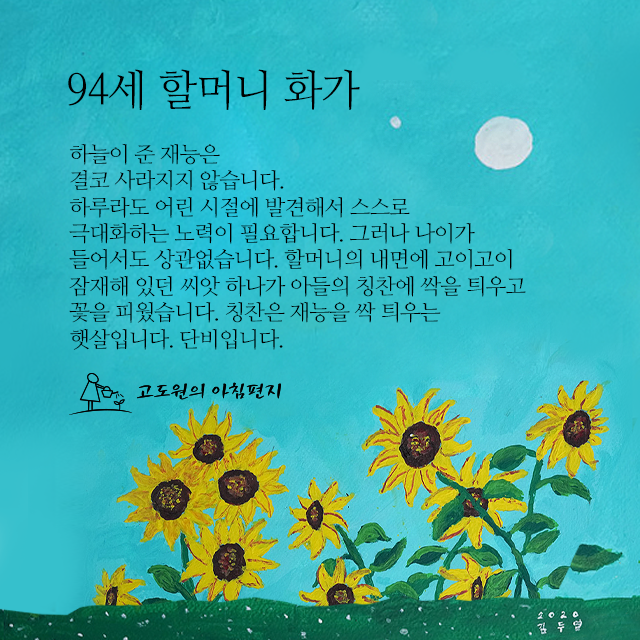 94세 할머니 화가
하늘이 준 재능은
결코 사라지지 않습니다.
하루라도 어린 시절에 발견해서 스스로
극대화하는 노력이 필요합니다. 그러나 나이가
들어서도 상관없습니다. 할머니의 내면에 고이고이
잠재해 있던 씨앗 하나가 아들의 칭찬에 싹을 틔우고
꽃을 피웠습니다. 칭찬은 재능을 싹 틔우는
햇살입니다. 단비입니다.
고도원의 아침편지
2020
김두엽